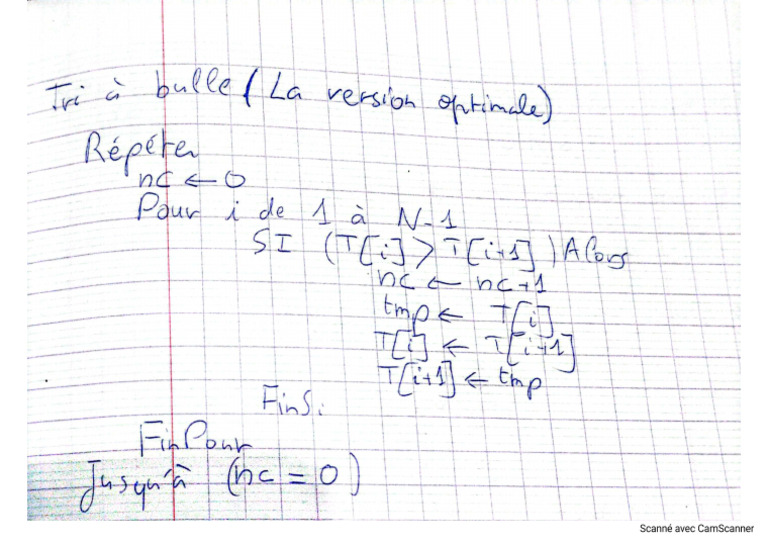 Tri à bulle (La version optimale)
Répéter
nc ← 0
Pour i de 1 à N-1
SI (T[i] > T[i+1]) Alors
nc ← nc+1
tmp ← T[i]
T[i] ← T[i+1]
T[i+1] ← tmp
FinSi
FinPour
Jusqu'à (nc = 0)
Scanné avec CamScanner